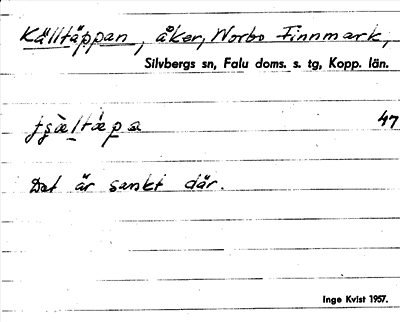 Källtäppan, åker, Norbo Finnmark,
Silvbergs sn, Falu doms. s. tg, Kopp. län.
47
Det är sankt där.
Inge Kvist 1957.